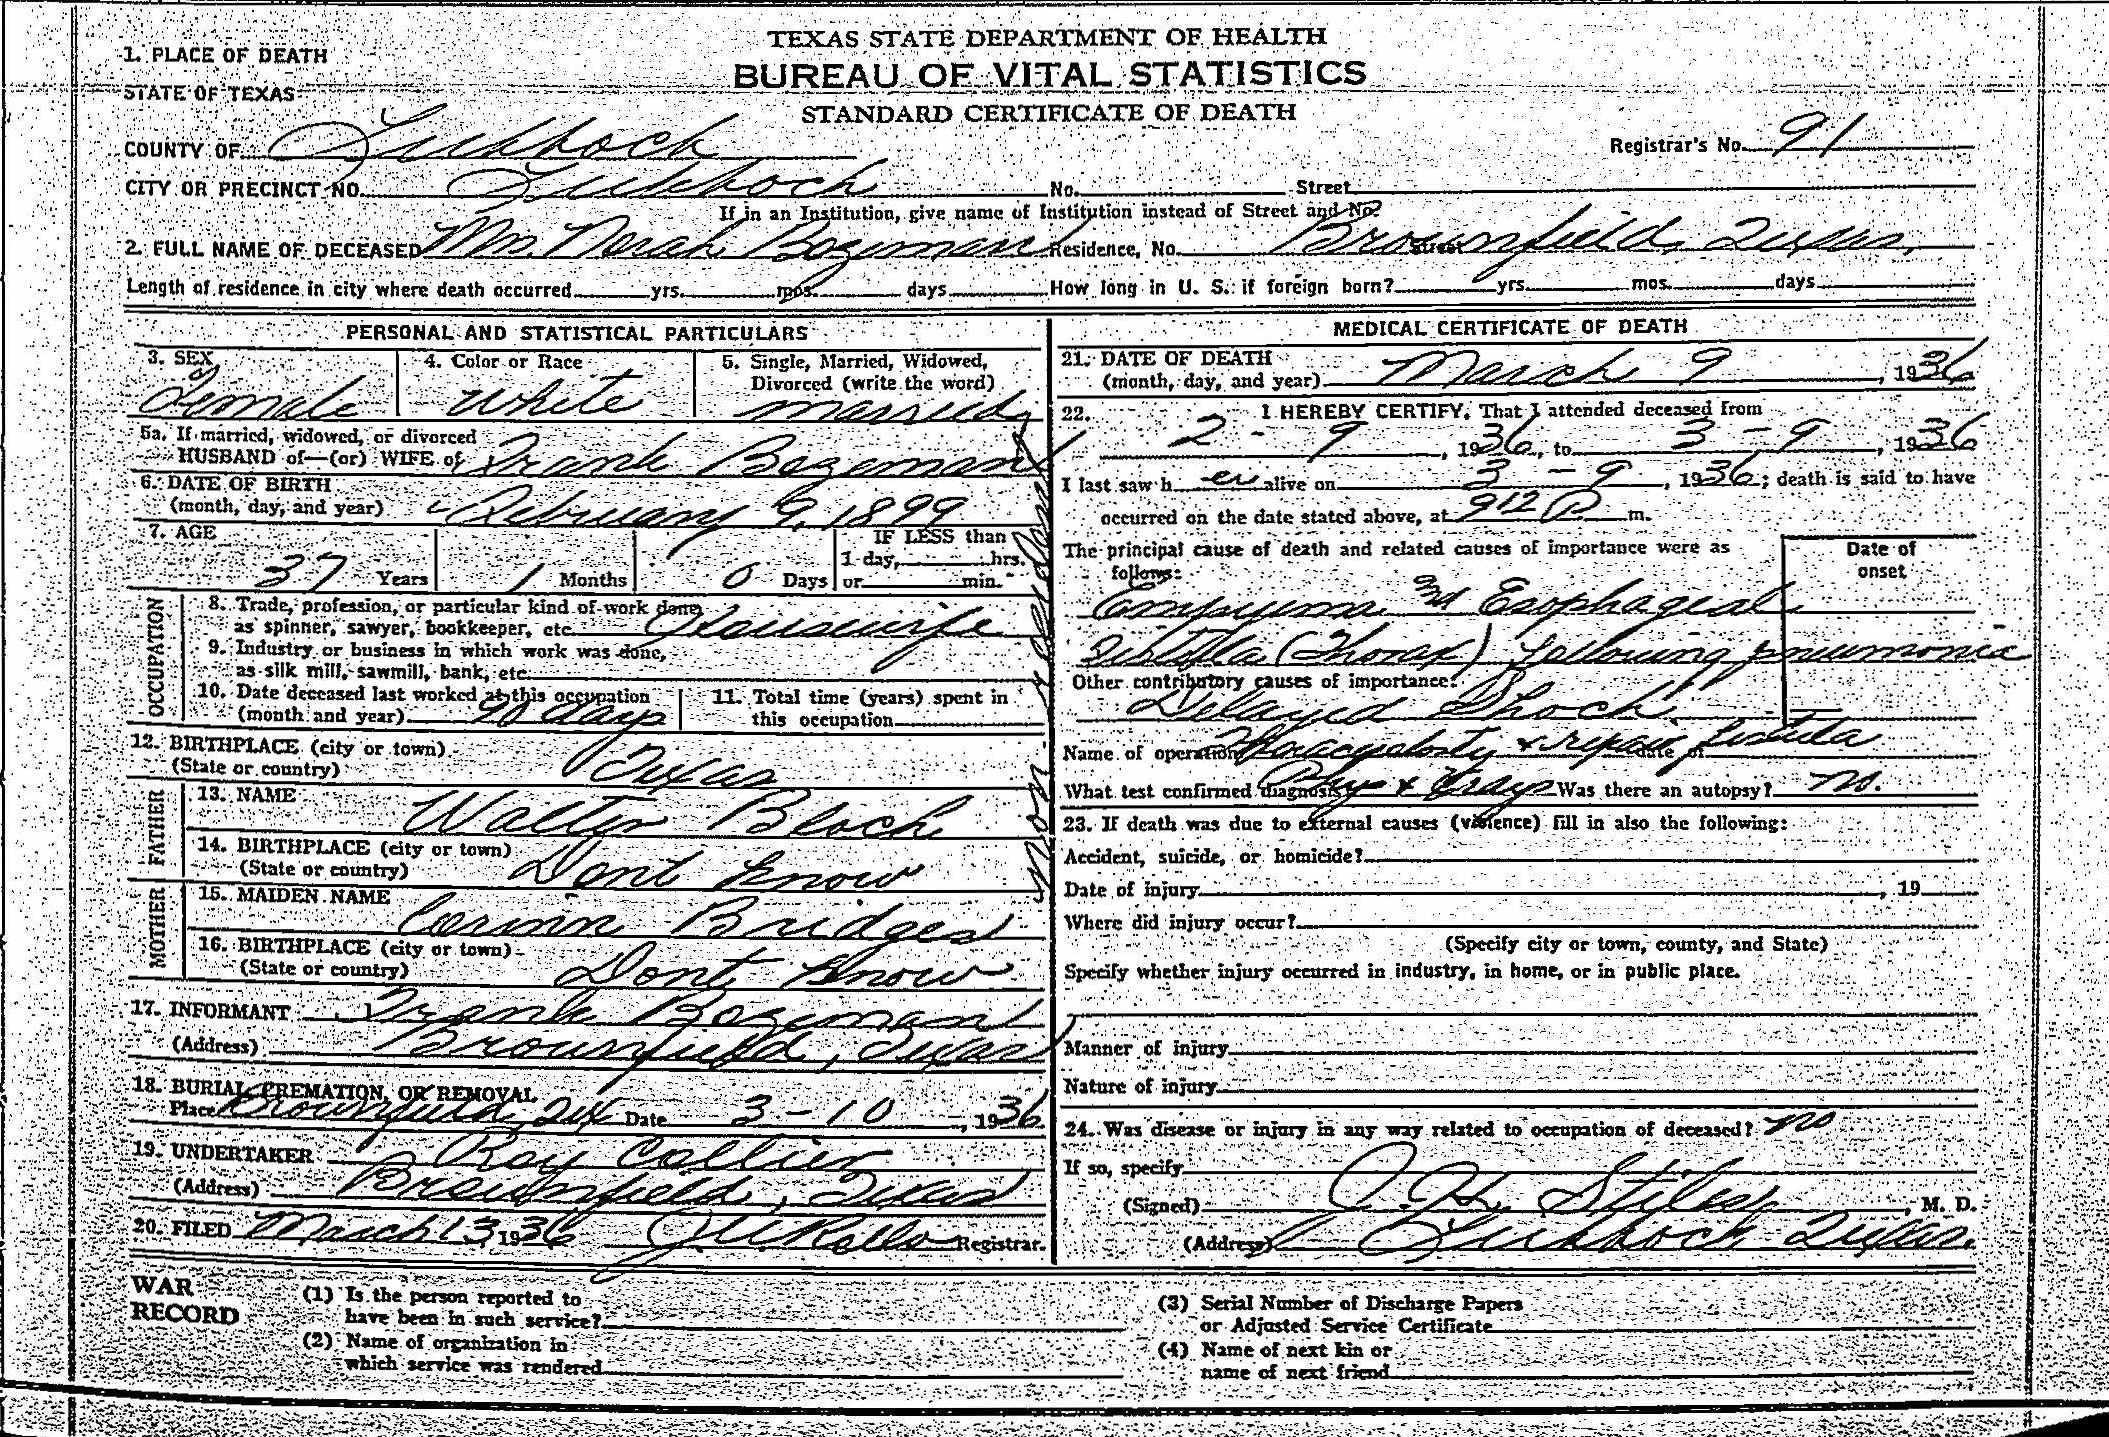 TEXAS STATE DEPARTMENT OF HEALTH
BUREAU OF VITAL STATISTICS
STANDARD CERTIFICATE OF DEATH
1. PLACE OF DEATH
STATE OF TEXAS
COUNTY OF Lubbock Registrar's No. 91
CITY OR PRECINCT NO. Lubbock No. Street
If in an Institution, give name of Institution instead of Street and No.
2. FULL NAME OF DECEASED Mrs. Norah Bozeman Residence, No. Street Brownfield, Texas.
Length of residence in city where death occurred yrs. mos. days How long in U. S. if foreign born? yrs. mos. days
PERSONAL AND STATISTICAL PARTICULARS
3. SEX 4. Color or Race 5. Single, Married, Widowed,
Divorced (write the word)
Female White married
5a. If married, widowed, or divorced
HUSBAND of—(or) WIFE of Frank Bozeman
6. DATE OF BIRTH
(month, day, and year) February 9, 1899
7. AGE IF LESS than
1 day, hrs.
37 Years 1 Months 0 Days or min.
OCCUPATION
8. Trade, profession, or particular kind of work done,
as spinner, sawyer, bookkeeper, etc. Housewife
9. Industry or business in which work was done,
as silk mill, sawmill, bank, etc.
10. Date deceased last worked at this occupation
(month and year) 90 days
11. Total time (years) spent in
this occupation
12. BIRTHPLACE (city or town)
(State or country) Texas
FATHER
13. NAME Walter Black
14. BIRTHPLACE (city or town)
(State or country) Dont know
MOTHER
15. MAIDEN NAME Corinn Bridges
16. BIRTHPLACE (city or town)
(State or country) Dont know
17. INFORMANT Frank Bozeman
(Address) Brownfield, Texas
18. BURIAL, CREMATION, OR REMOVAL
Place Brownfield, Tex Date 3-10, 1936
19. UNDERTAKER Roy Collier
(Address) Brownfield, Texas
20. FILED March 13, 1936 Registrar.
Non resident
MEDICAL CERTIFICATE OF DEATH
21. DATE OF DEATH
(month, day, and year) March 9, 1936
22. I HEREBY CERTIFY, That I attended deceased from
2-9, 1936, to 3-9, 1936
I last saw h er alive on 3-9, 1936; death is said to have
occurred on the date stated above, at 912 P. m.
The principal cause of death and related causes of importance were as
follows:
Date of
onset
Empyema Esophageal
Fistula (Thorax) following pneumonia
Other contributory causes of importance:
Delayed Shock.
Name of operation & repair fistula date of
What test confirmed diagnosis? & Xrays Was there an autopsy? no.
23. If death was due to external causes (violence) fill in also the following:
Accident, suicide, or homicide?
Date of injury , 19
Where did injury occur?
(Specify city or town, county, and State)
Specify whether injury occurred in industry, in home, or in public place.
Manner of injury
Nature of injury
24. Was disease or injury in any way related to occupation of deceased? no
If so, specify
(Signed) J. H. Stiles, M. D.
(Address) Lubbock Texas.
WAR
RECORD
(1) Is the person reported to
have been in such service?
(2) Name of organization in
which service was rendered
(3) Serial Number of Discharge Papers
or Adjusted Service Certificate
(4) Name of next kin or
name of next friend